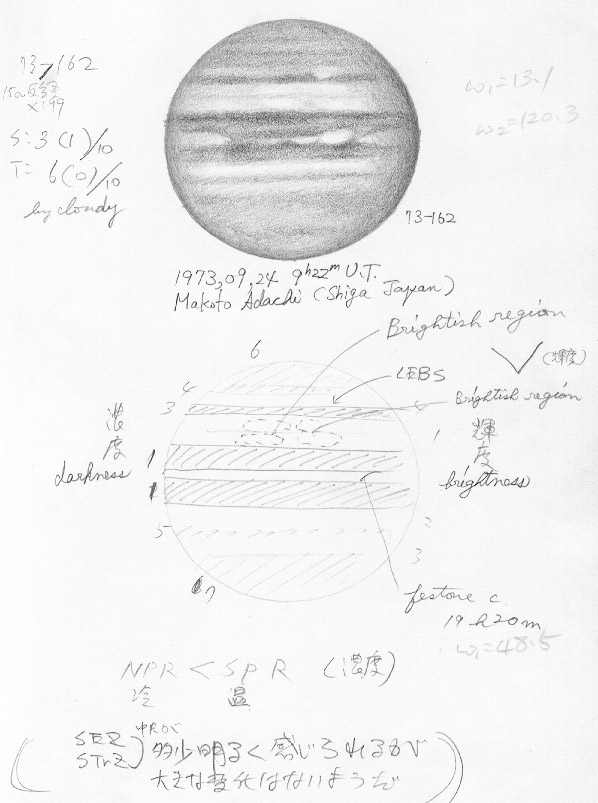 73-162
15cm反射
×199
S: 3 (1)/10
T: 6 (0)/10
by cloudy
ω₁=13.1
ω₂=120.3
73-162
1973,09,24 9ʰ22ᵐ U.T.
Makoto Adachi (Shiga Japan)
Brightish region
6
(輝度)
LEBS
4
Brightish region
3
4
濃度
darkness
1
1
1
輝度
brightness
5
2
3
7
festone c.
19h20m
ω₁=48.5
NPR < SPR (濃度)
冷 温
SEZ
STrZ
中央が
多少明るく感じられるが
大きな変化はないようだ